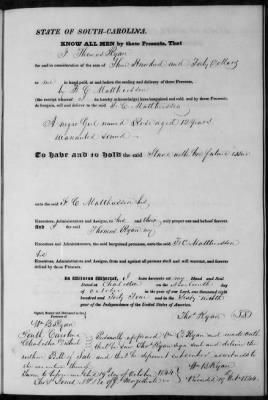 STATE OF SOUTH-CAROLINA.
KNOW ALL MEN by these Presents, That
I Thomas Ryan
for and in consideration of the sum of Three Hundred and Forty Dollars
to me in hand paid, at and before the sealing and delivery of these Presents,
by F. C. Matthiessen
(the receipt whereof I do hereby acknowledge) have bargained and sold, and by these Presents, do
bargain, sell and deliver to the said F. C. Matthiessen
A negro Girl named Rose aged 12 years
warranted sound
To have and to hold the said Slave with her future issue
unto the said F. C. Matthiessen his
Executors, Administrators and Assigns, to his and their only proper use and behoof forever.
And I the said Thomas Ryan my
Executors and Administrators, the said bargained premises, unto the said F. C. Matthiessen
his
Executors, Administrators and Assigns, from and against all persons shall and will warrant, and forever
defend by these Presents.
In Witness Whereof, I have hereunto set my Hand and Seal
Dated at Charleston on the
day of October in the year of our Lord, one thousand eight
hundred and forty four and in the Sixty ninth
year of the Independence of the United States of America.
Signed, Sealed and Delivered in the Presence of
Thos Ryan
W B Ryan
South Carolina
Charleston District
Personally appeared Wm B Ryan and made oath
that he saw Thos Ryan sign seal and deliver the
within Bill of Sale and that
the execution thereof
W B Ryan
Recorded 19 Oct 1844